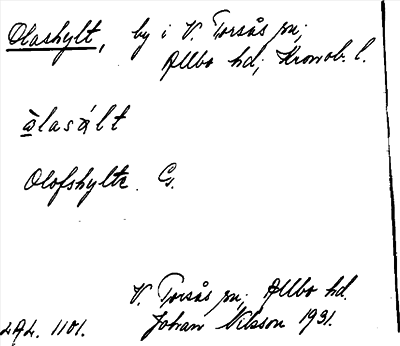 Olashylt, by i V. Torsås sn,
Allbo hd, Kronob. l.
òlasált
Olofshylte G.
V. Torsås sn, Allbo hd.
LAL. 1101. Johan Nilsson 1931.